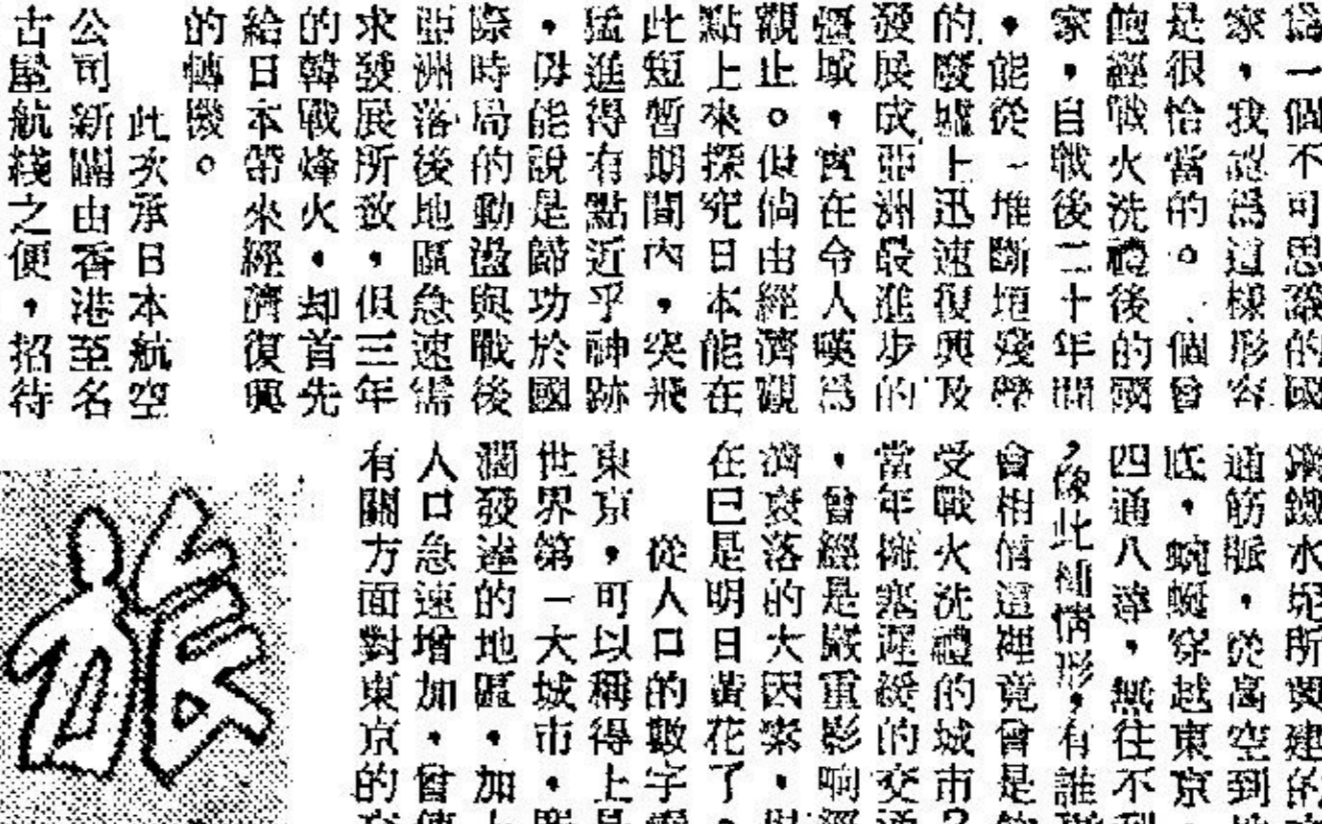 爲一個不可思議的國
家,我認爲這樣形容
是很恰當的。一個曾
飽經戰火洗禮後的國
家,自戰後二十年間
,能從一堆斷垣殘壁
的廢墟上迅速復興及
發展成亞洲最進步的
疆域,實在令人嘆爲
觀止。但倘由經濟觀
點上來探究日本能在
此短暫期間內,突飛
猛進得有點近乎神跡
,毋能說是歸功於國
際時局的動盪與戰後
亞洲落後地區急速需
求發展所致,但三年
的韓戰烽火,却首先
給日本帶來經濟復興
的轉機。
此次承日本航空
公司新闢由香港至名
古屋航綫之便,招待
鐵水坭所興建的
通筋脈,從高空到地
底,蜿蜒穿越東京,
四通八達,無往不到
,像此種情形,有誰
會相信這裡竟會是
受戰火洗禮的城市?
當年擁塞遲緩的交通
,曾經是嚴重影响經
濟衰落的大因素,但
在已是明日黃花了。
從人口的數字
東京,可以稱得上是
世界第一大城市,
濶發達的地區,加
人口急速增加,曾
有關方面對東京的
旅